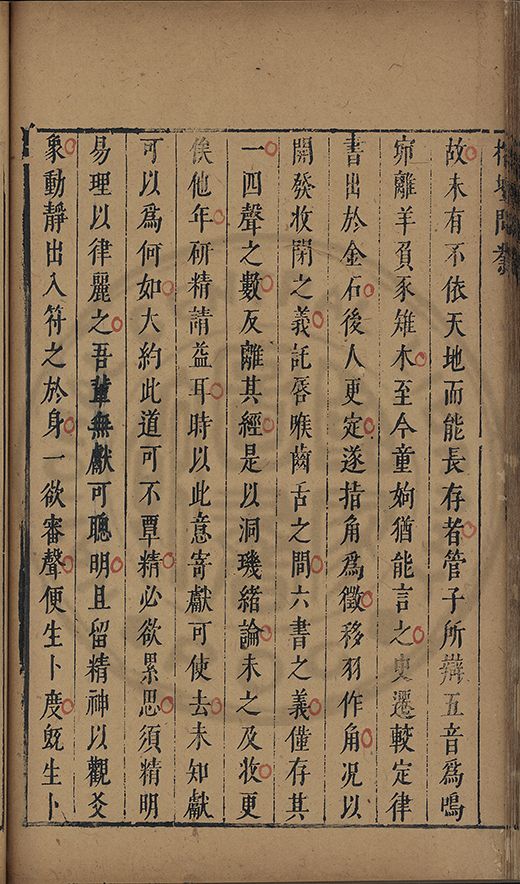 故未有不依天地而能長存者管子所辯五音為鳴
窌離羊負豕雉木至今童姁猶能言之史遷較定律
書出於金石後人更定遂指角為徵移羽作角况以
開發收閉之義託唇喉齒舌之間六書之義僅存其
一四聲之數反離其經是以洞璣緒論未之及收更
俟他年研精請益耳時以此意寄獻可使去未知獻
可以為何如大約此道可不覃精必欲累思須精明
易理以律麗之吾輩無獻可聰明且留精神以觀爻
象動靜出入符之於身一欲審聲便生卜度旣生卜